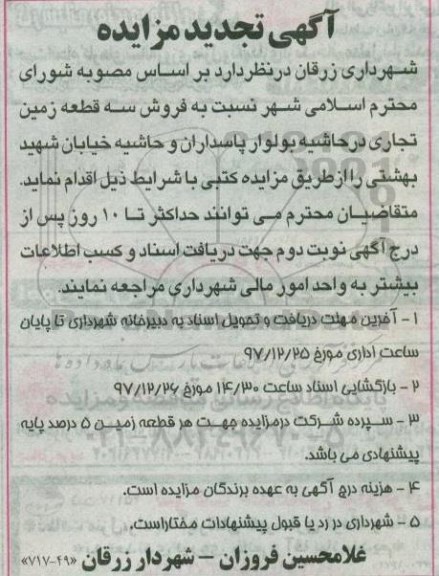 آگهی تجدید مزایده
شهرداری زرقان درنظردارد بر اساس مصوبه شورای
محترم اسلامی شهر نسبت به فروش سه قطعه زمین
تجاری درحاشیه بولوار پاسداران و حاشیه خیابان شهید
بهشتی را ازطریق مزایده کتبی با شرایط ذیل اقدام نماید.
متقاضیان محترم می توانند حداکثر تا ۱۰ روز پس از
درج آگهی نوبت دوم جهت دریافت اسناد و کسب اطلاعات
بیشتر به واحد امور مالی شهرداری مراجعه نمایند.
۱- آخرین مهلت دریافت و تحویل اسناد به دبیرخانه شهرداری تا پایان
ساعت اداری مورخ ۹۷/۱۲/۲۵
۲- بازگشایی اسناد ساعت ۱۴/۳۰ مورخ ۹۷/۱۲/۲۶
۳- سپرده شرکت درمزایده جهت هر قطعه زمین ۵ درصد پایه
پیشنهادی می باشد.
۴- هزینه درج آگهی به عهده برندگان مزایده است.
۵- شهرداری در رد یا قبول پیشنهادات مختاراست.
غلامحسین فروزان – شهردار زرقان «۷۱۷-۴۹»